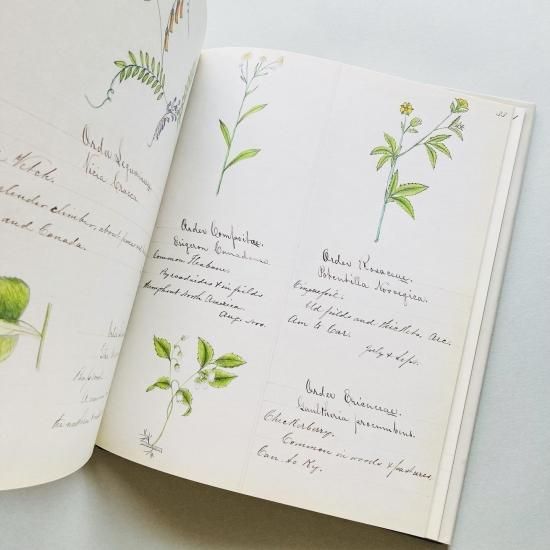 Order Leguminosae.
Vicia Cracca
Vetch.
slender, climber, about
and Canada.
Order Compositae.
Erigeron Canadense
Common Fleabane
By roadsides & in fields
throughout North America.
Aug.
33
Order Rosaceae.
Potentilla Norvegica.
Cinquefoil.
Old fields and thickets, Arc.
Am to Car.
July & Sept.
Order Ericaceae.
Gaultheria procumbens.
Checkerberry.
Common in woods & pastures,
Can. to Ky.